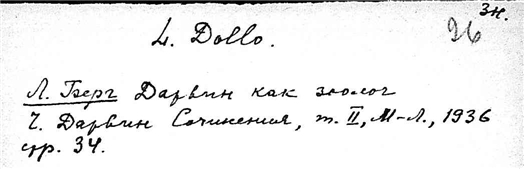 Зн.
26
L. Dollo.
Л. Берг Дарвин как зоолог
Ч. Дарвин Сочинения, т. II, М-Л., 1936
стр. 34.